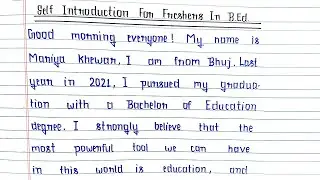 Self Introduction For Freshers In B.Ed.
Good morning everyone! My name is
Maniya Khewar. I am from Bhuj. Last
year in 2021, I pursued my gradua-
tion with a Bachelor of Education
degree. I strongly believe that the
most powerful tool we can have
in this world is education, and